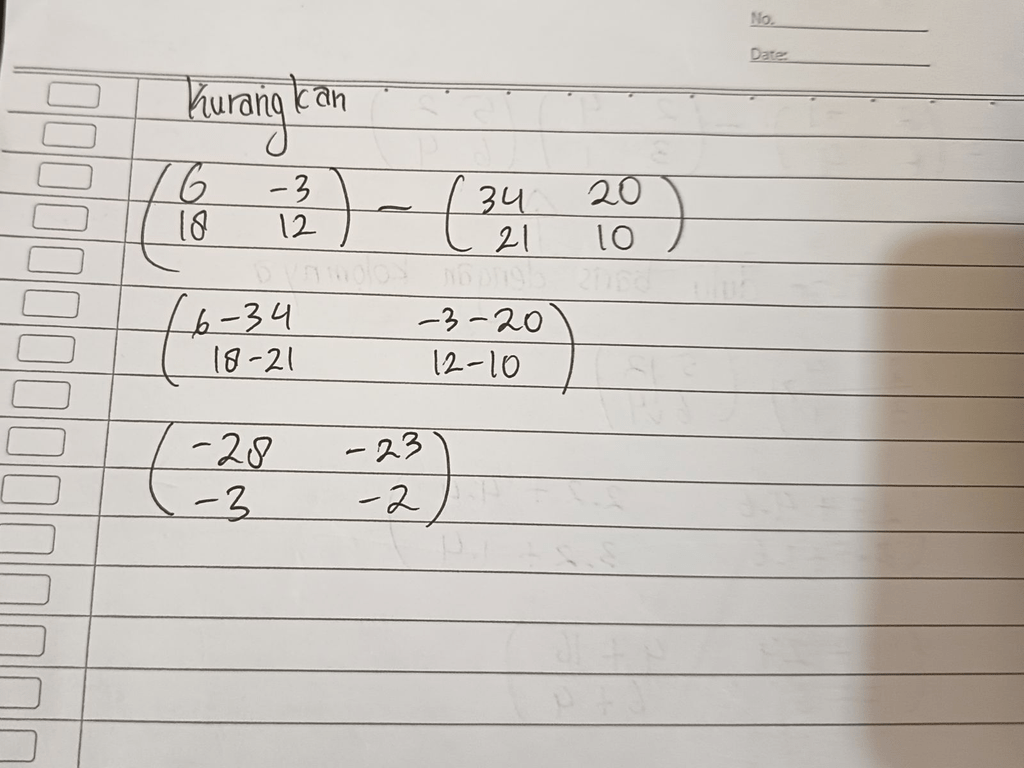 No.
Date:
Kurangkan
( 6 -3 ) - ( 34 20 )
( 18 12 ) ( 21 10 )
( 6-34 -3-20 )
( 18-21 12-10 )
( -28 -23 )
( -3 -2 )